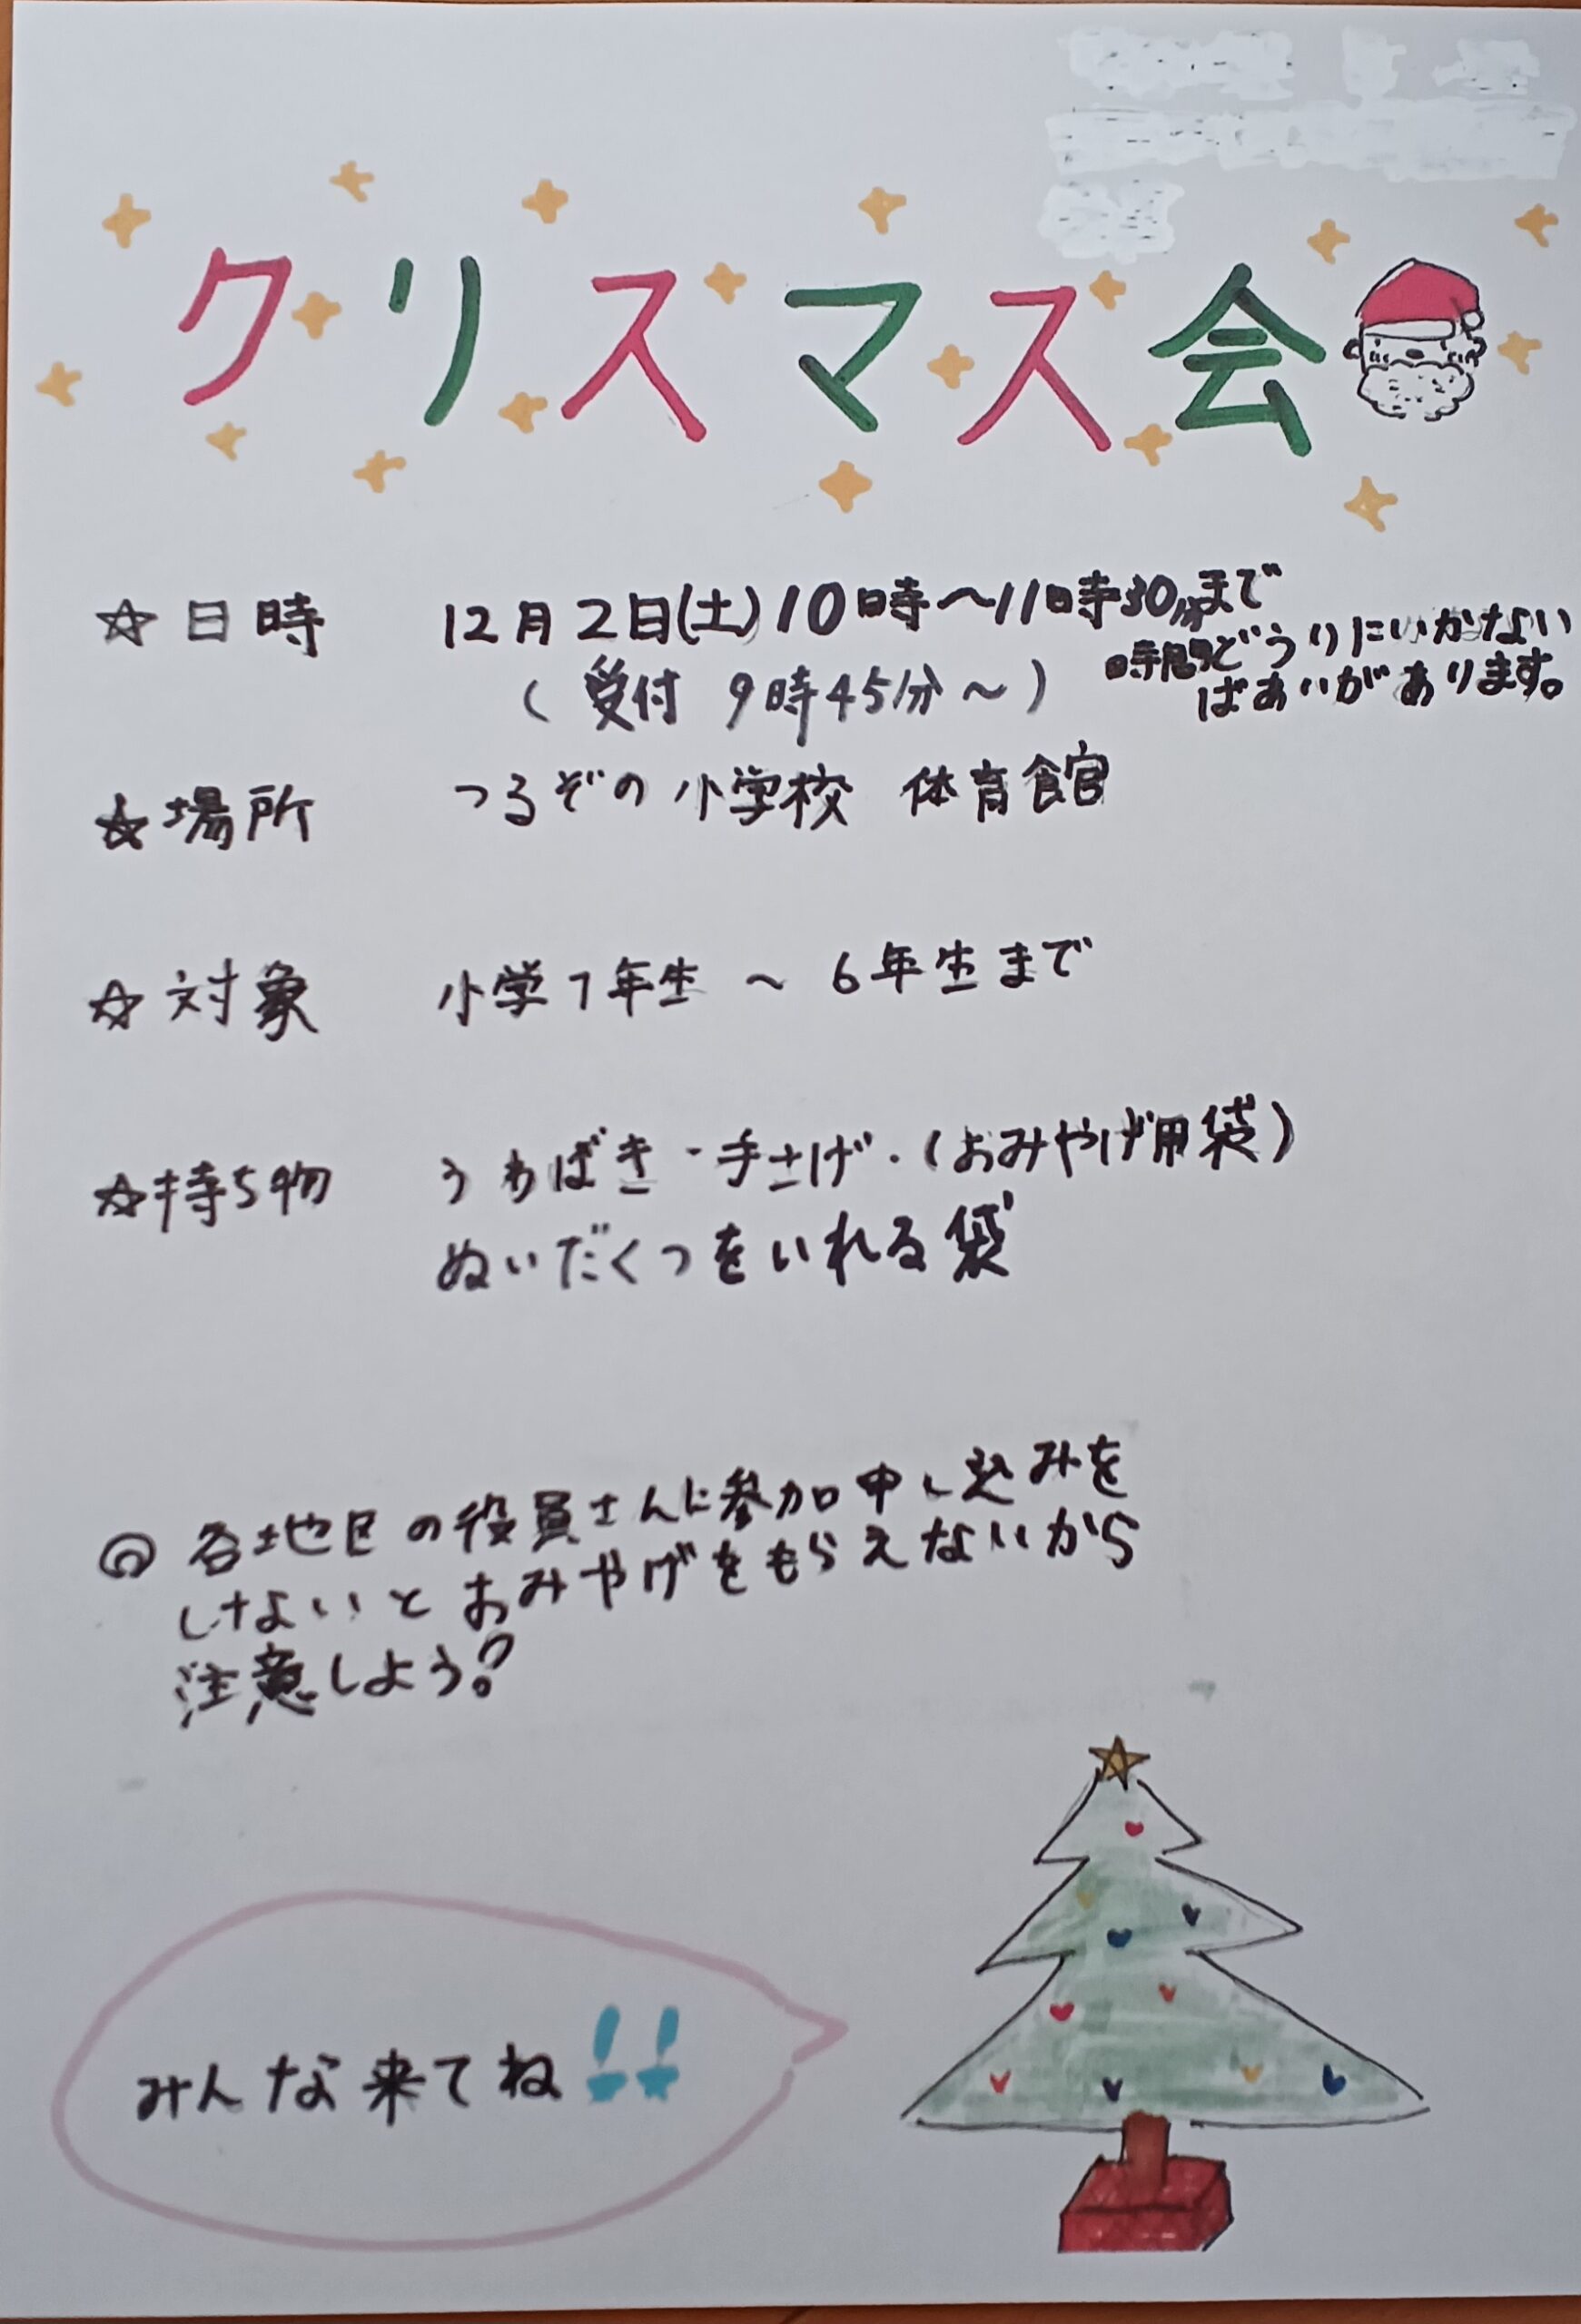 クリスマス会
☆日時 12月2日(土)10時〜11時30分まで
時間どうりにいかない
ばあいがあります。
(受付 9時45分〜)
☆場所 つるぞの小学校 体育館
☆対象 小学1年生 〜 6年生まで
☆持ち物 うわばき・手さげ・(おみやげ用袋)
ぬいだくつをいれる袋
◎各地区の役員さんに参加申し込みを
しないとおみやげをもらえないから
注意しよう?
みんな来てね!!